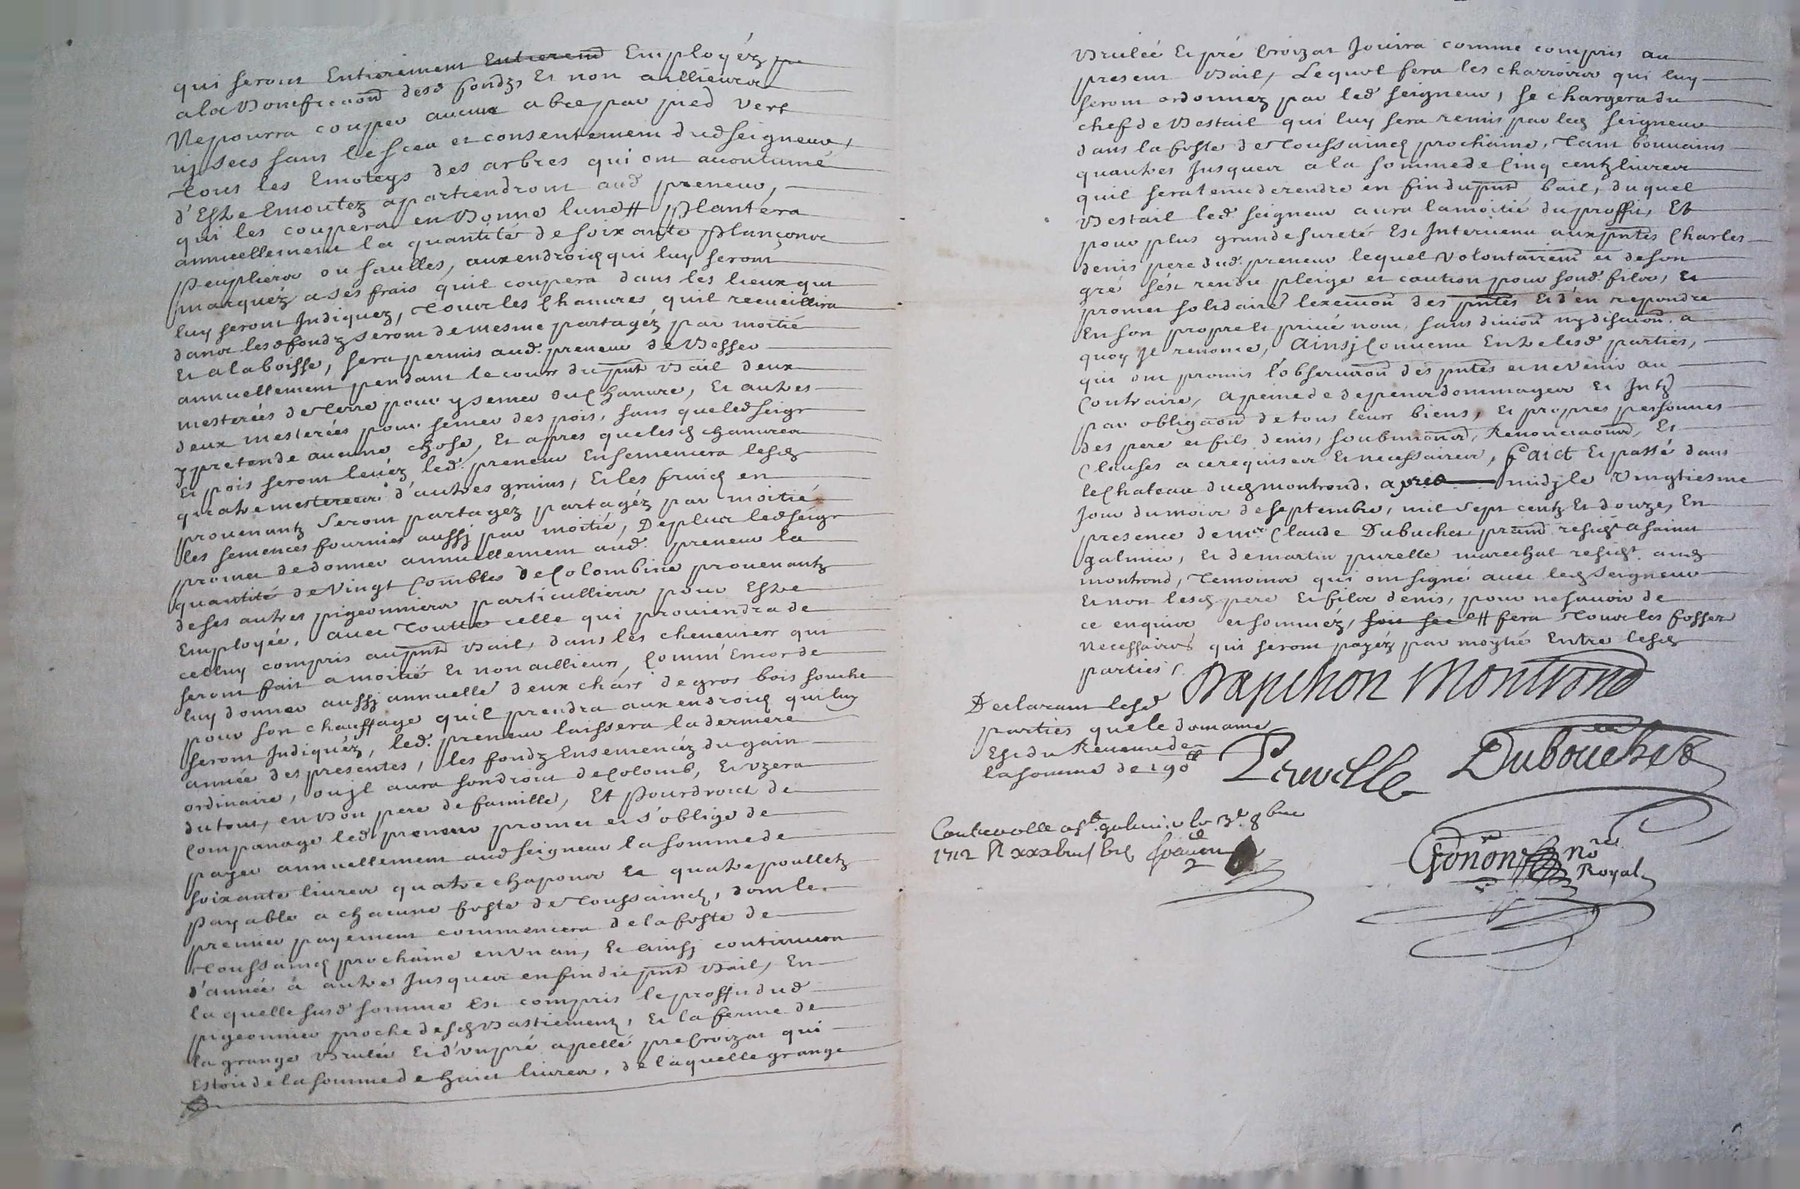 qui seront Entierement Entierem Employéz
a la Bonificaon desd fondz Et non ailleurs
Ne pourra couper aucun abre par pied vert
ny secs sans le sceu et consentement dudseigneur,
Tous les Emoteys des arbres qui ont acoutumé
d'Estre Emoutez apartiendront aud preneur,
qui les coupera en Bonne lune # Plantera
annuellement la quantité de soixante plançons
Peupliers ou saulles, aux endroicts qui luy seront
marquéz a ses frais quil coupera dans les lieux qui
luy seront Indiquez, Tous les Chanvres quil recueillira
dans lesd fondz seront de mesme partagéz par moitié
Et a la boisse, sera permis aud. preneur de
annuellement pendant le cours du pnt Bail deux
mesterées de terre pour y semer du Chanvre, Et autres
deux mesterées pour semer des pois, sans que led seigr
y pretende aucune chose, Et apres que lesd chanvres
Et pois seront levéz led. preneur Ensemencera lesd
quatre mesterées d'autres grains, Et les fruicts en
provenantz seront partagéz partagéz par moitié
les semences fournies aussj par moitié, De plus led seigr
promet de donner annuellement aud. preneur la
quantité de vingt Combles de Colombine provenantz
de ses autres pigeonniers particulliers pour Estre
Employée, avec Toutte celle qui proviendra de
celluy compris au pnt Bail, dans les cheneviers qui
seront fait a moitié Et non ailleurs, Comm'Encor de
luy donner aussj annuelle deux chars de gros bois souche
pour son chauffage quil prendra aux endroicts qui luy
seront Indiquéz, led. preneur laissera la derniere
année des presentes, les fondz Ensemencéz du gain
ordinaire, ou jl aura son droict de Colomb, Et uzera
du tout, en Bon pere de famille, Et Pour droict de
Companage led preneur promet et s'oblige de
payer annuellement aud seigneur la somme de
soixante livres quatre chapons Et quatre pouletz
Payable a chacune feste de Toussainct, dont le
premier payement commencera de la feste de
Toussainct prochaine en un an, Et ainsj continuera
d'année à autre Jusques en fin du pnt Bail, En
la quelle susd somme Est compris le proffit dud
pigeonnier proche desd Bastiement, Et la ferme de
la grange Brulée Et d'un pré apellé pré Croizat qui
Estoit de la somme de huict livres, de laquelle grange
Brulée Et pré Croizat Jouira comme compris au
present Bail, Lequel fera les charrois qui luy
seront ordonnez par led seigneur, se chargera du
chef de Bestail qui luy sera remis par led seigneur
dans la feste de Toussainct prochaine, Tant bonnains
quautres Jusques a la somme de Cinq centz livres
quil sera tenu de rendre en fin du pnt bail, du quel
Bestail led seigneur aura la moitié du proffit, Et
pour plus grande sureté Est Intervenu aux pntes Charles
denis pere dud. preneur lequel volontairem et de son
gré s'est rendu pleige et caution pour sond. fils, Et
promet solidaire lexecuon des pntes Et d'en repondre
En son propre Et privé nom, sans divion ny discuion, a
quoy Jl renonce, Ainsj Convenu Entre lesd parties,
qui ont promis l'observaon des pntes et ne venir au
Contraire, a peine de depens dommages Et Intz
par obligaon de tous leurs biens, Et propres personnes
des pere et fils denis, soubmions, Renonciaons, Et
Clauses a ce requises Et necessaires, Faict Et passé dans
le Chateau dud montrond, apres midj le vingtiesme
Jour du mois de septembre, mil sept centz Et douze, En
presence de mr Claude Dubuchet resid A sainct
galmier, Et de martin purelle marechal resid aud
montrond, Temoins qui ont signé avec led seigneur
Et non lesd pere Et fils denis, pour ne savoir de
ce enquis et sommez, # fera Tous les fosser
necessaires qui seront payéz par moytié Entre lesd
parties,
Declarant lesd
parties que le domaine
Est du Revenu de
la somme de 190ll
Drapihon Montrond
Purelle
Dubouchet
Controolle a st galmier le 3e 8bre
1712 R
2
Gonon Nore
Royal